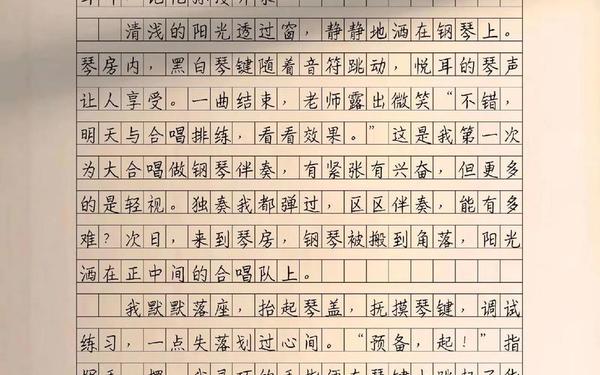 清浅的阳光透过窗，静静地洒在钢琴上。
琴房内，黑白琴键随着音符跳动，悦耳的琴声
让人享受。一曲结束，老师露出微笑“不错，
明天与合唱排练，看看效果。”这是我第一次
为大合唱做钢琴伴奏，有紧张有兴奋，但更多
的是轻视。独奏我都弹过，区区伴奏，能有多
难？次日，来到琴房，钢琴被搬到角落，阳光
洒在正中间的合唱队上。
我默默落座，抬起琴盖，抚摸琴键，调试
练习，一点失落划过心间。“预备，起！”指